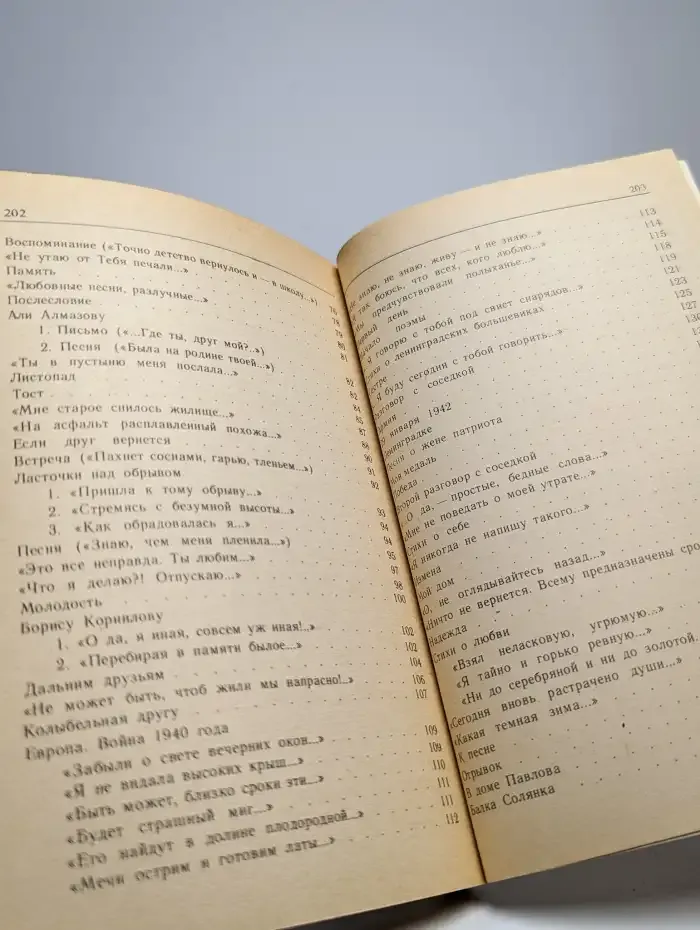 202
Воспоминание («Точно детство вернулось и — в школу...») 76
«Не утаю от Тебя печали...»
Память
«Любовные песни, разлучные...» 78
Послесловие 79
Али Алмазову
1. Письмо («...Где ты, друг мой?..») 80
2. Песня («Была на родине твоей...») 81
«Ты в пустыню меня послала...»
Листопад 82
Тост 82
«Мне старое снилось жилище...» 84
«На асфальт расплавленный похожа...» 85
Если друг вернется 87
Встреча («Пахнет соснами, гарью, тленьем...») 90
Ласточки над обрывом 91
1. «Пришла к тому обрыву...» 92
2. «Стремясь с безумной высоты...» 93
3. «Как обрадовалась я...» 94
Песня («Знаю, чем меня пленила...») 94
«Это все неправда. Ты любим...» 95
«Что я делаю?! Отпускаю...» 97
Молодость 98
Борису Корнилову 100
1. «О да, я иная, совсем уж иная!..»
2. «Перебирая в памяти былое...» 102
Дальним друзьям 102
«Не может быть, чтоб жили мы напрасно!..» 104
Колыбельная другу 106
Европа. Война 1940 года 107
«Забыли о свете вечерних окон...»
«Я не видала высоких крыш...» 109
«Быть может, близко сроки эти...» 109
«Будет страшный миг...» 110
«Его найдут в долине плодородной...» 111
«Мечи острим и готовим латы...» 111
112
203
не знаю, не знаю, живу — и не знаю...» 113
так боюсь, что всех, кого люблю...» 114
предчувствовали полыханье...» 115
день 118
поэмы 119
говорю с тобой под свист снарядов...» 121
о ленинградских большевиках 123
125
буду сегодня с тобой говорить...» 127
с соседкой
января 1942
Ленинградке
Песня о жене патриота
Моя медаль
Победа
Второй разговор с соседкой
«О да, — простые, бедные слова...»
«Мне не поведать о моей утрате...»
Стихи о себе
«Я никогда не напишу такого...»
Измена
Мой дом
«О, не оглядывайтесь назад...»
«Ничто не вернется. Всему предназначены сро
Надежда
Стихи о любви
«Взял неласковую, угрюмую...»
«Я тайно и горько ревную...»
«Ни до серебряной и ни до золотой.
«Сегодня вновь растрачено души...»
«Какая темная зима...»
К песне
Отрывок
В доме Павлова
Балка Солянка